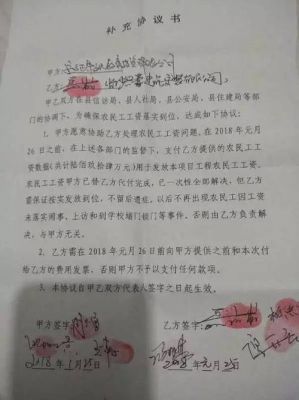 补充协议书
甲方:
乙方:
甲乙双方在县信访局、县人社局、县公安局、县住建局等部
门的协调下,为确保农民工工资落实到位,达成如下协议:
1、甲方愿意协助乙方处理农民工工资问题,在2018年元月
26日之前,在上述各部门的监督下,支付乙方提供的农民工工
资数据(共计陆佰玖拾肆万元)用于发放本项目工程农民工工资。
农民工工资甲方已替乙方代付完成,已一次性全部解决,但乙方
需保证按实发放到位,不留后遗症,以后不再出现农民工因工资
未落实闹事、上访和到学校堵门锁门等事件,否则由乙方负责解
决,与甲方无关。
2、乙方需在2018年元月26日前向甲方提供之前和本次付
给乙方的费用发票,否则甲方不予以支付任何款项。
3、本协议自甲乙双方代表人签字之日起生效。
甲方签字: 乙方签字:
2018年1月25日 年元月25日